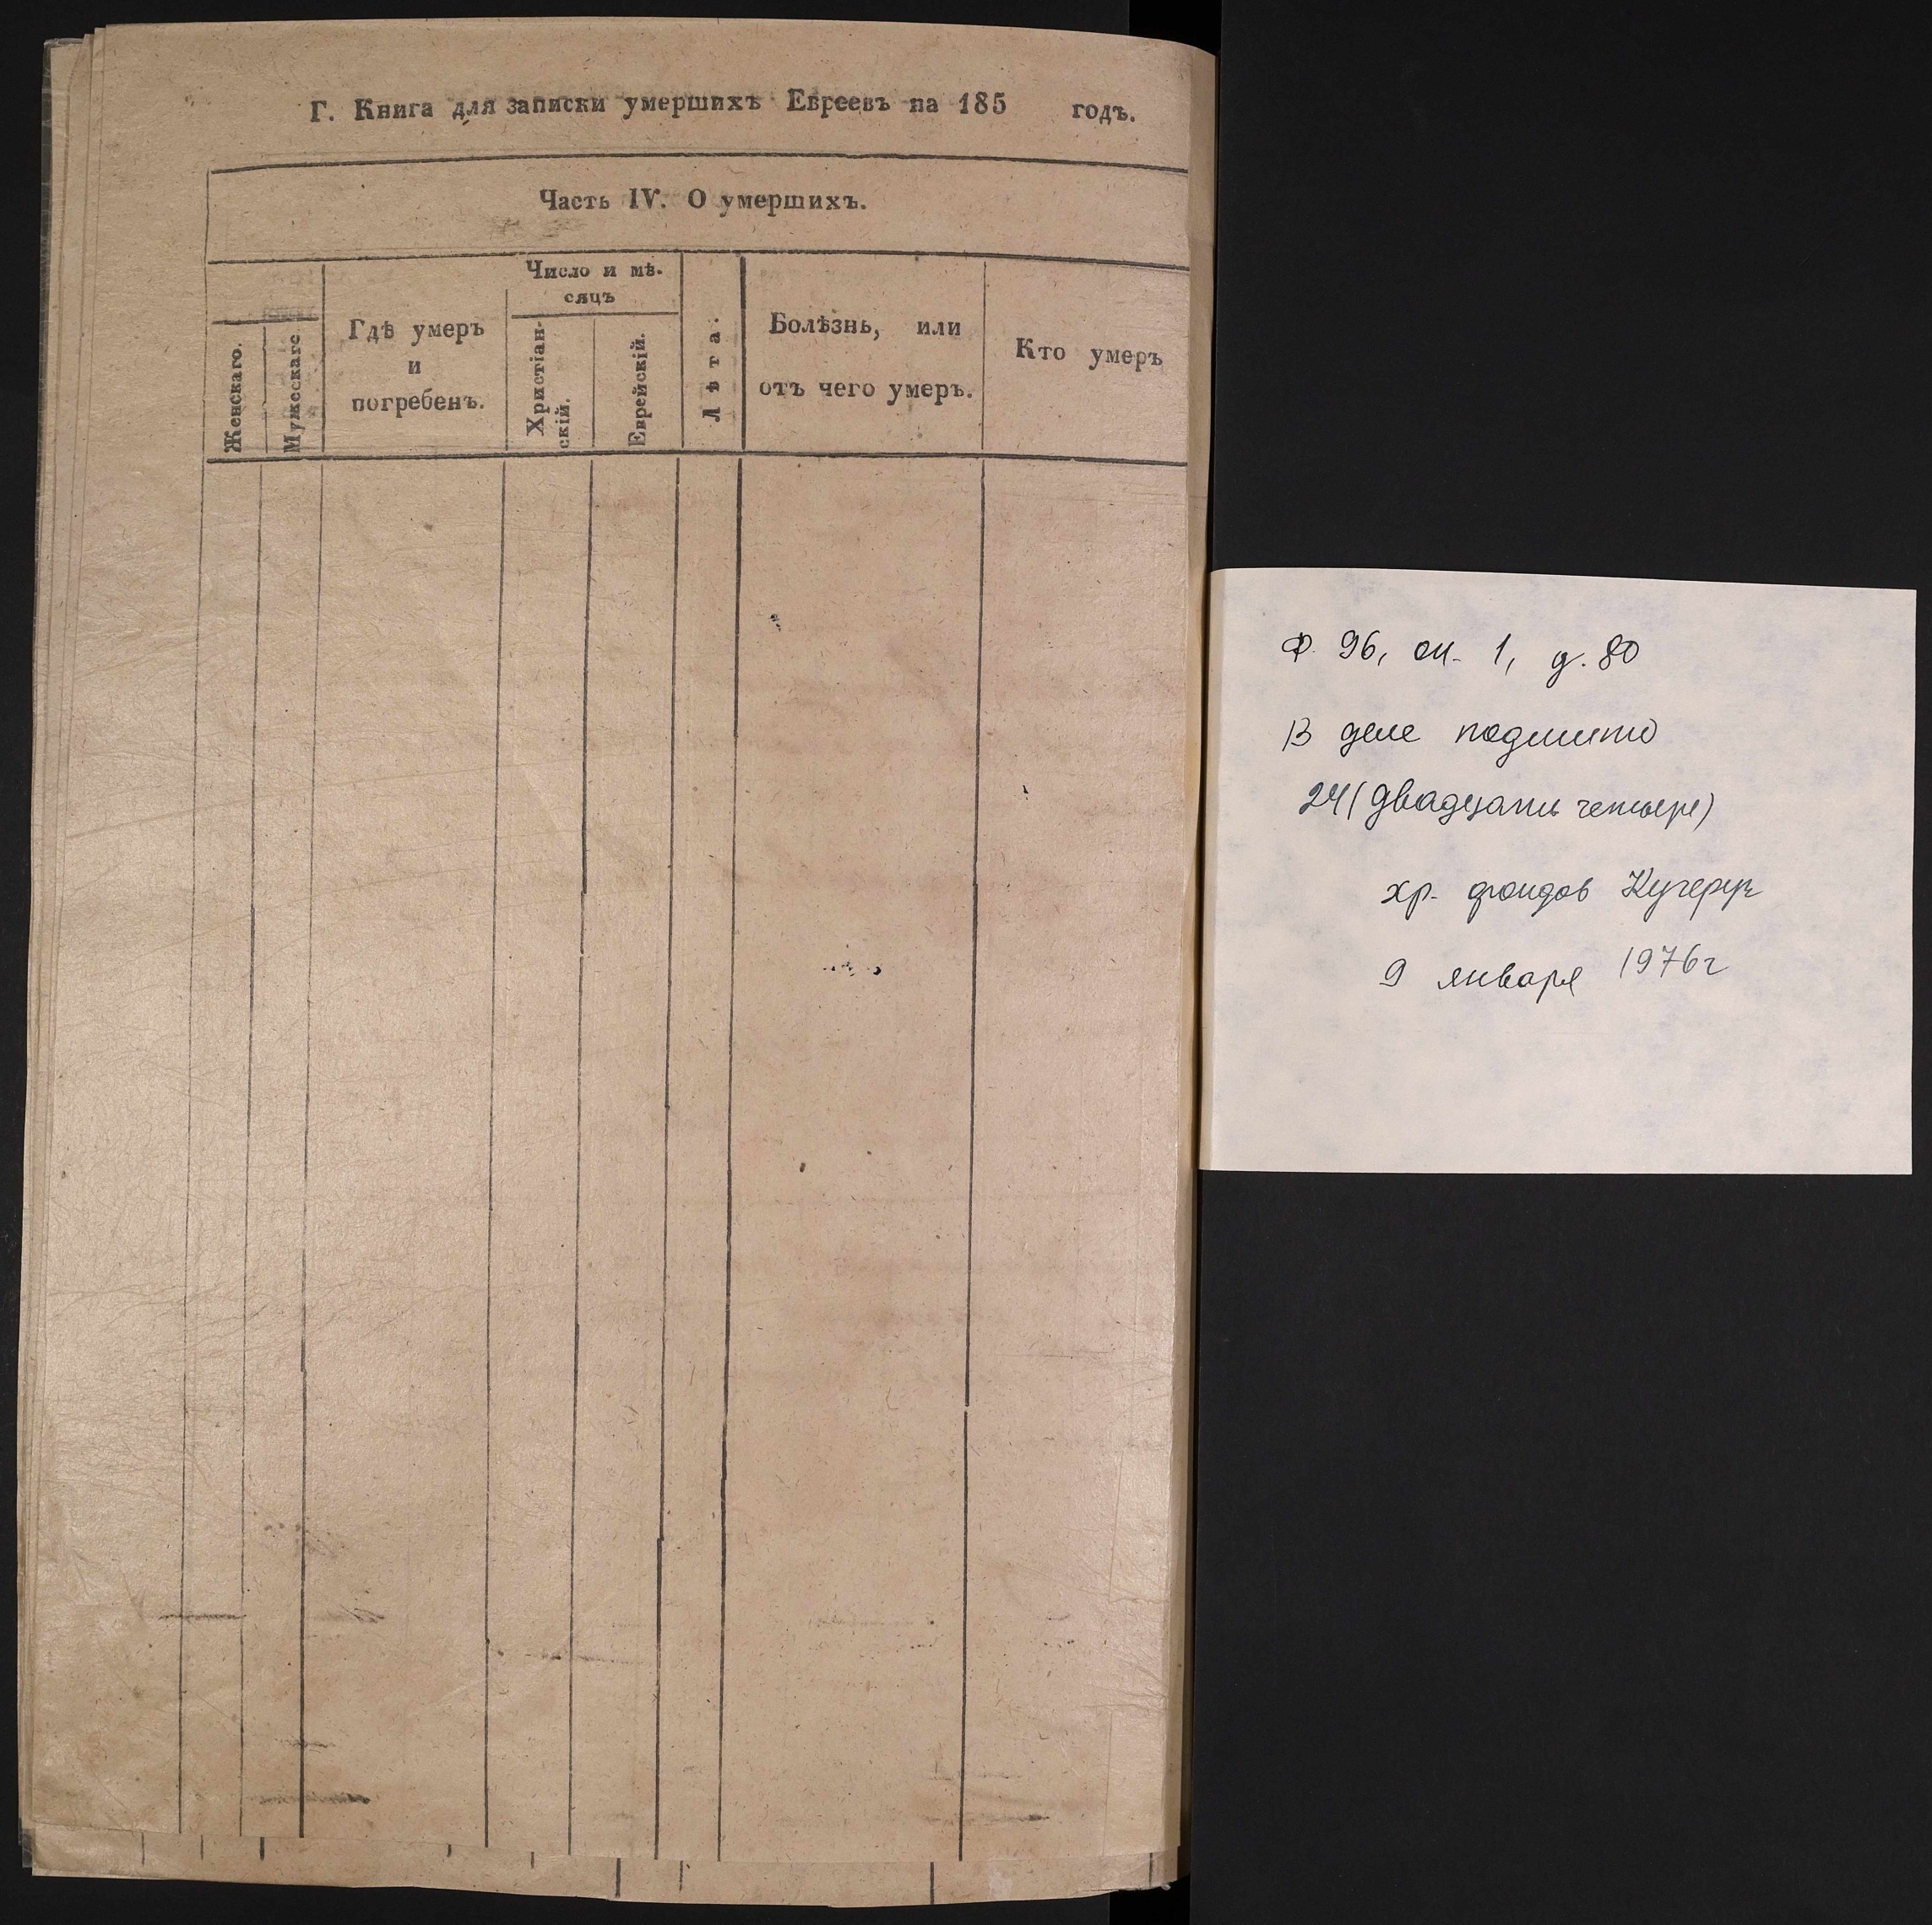 Г. Книга для записки умершихъ Евреевъ на 185 годъ.
Часть IV. О умершихъ.
Женскаго.
Мужескаго
Гдѣ умеръ
и
погребенъ.
Число и мѣ-
сяцъ
Христіан-
скій.
Еврейскій.
Лѣта.
Болѣзнь, или
отъ чего умеръ.
Кто умеръ
Ф. 96, оп. 1, д. 80
В деле подшито
24 (двадцать четыре)
хр. фондов Кучерук
9 января 1976г